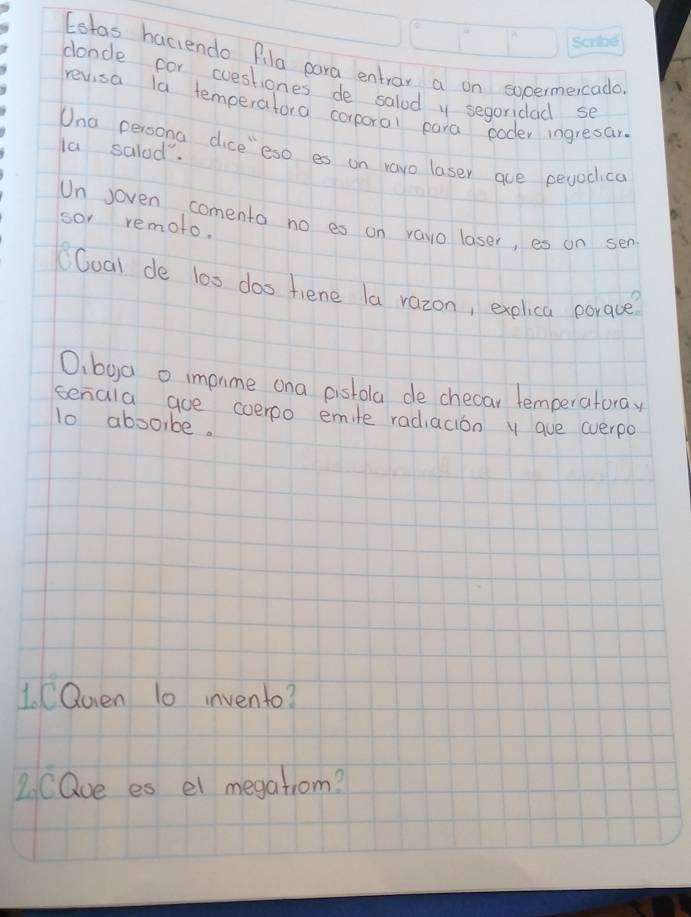 Scribe
Estas haciendo fila para entrar a un supermercado.
donde por cuestiones de salud y seguridad se
revisa la temperatura corporal para poder ingresar.
Una persona dice "eso es un rayo laser que perjudica
la salud".
Un joven comenta no es un rayo laser, es un sen-
sor remoto.
¿Cual de los dos tiene la razon, explica porque?
Dibuja o imprime una pistola de checar temperatura y
señala que cuerpo emite radiación y que cuerpo
lo absorbe.
1. ¿Quien lo invento?
2. ¿Que es el megatrom?